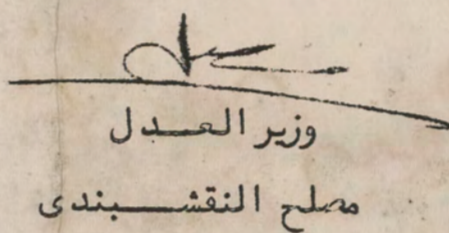 وزير العدل
مصلح النقشبندى